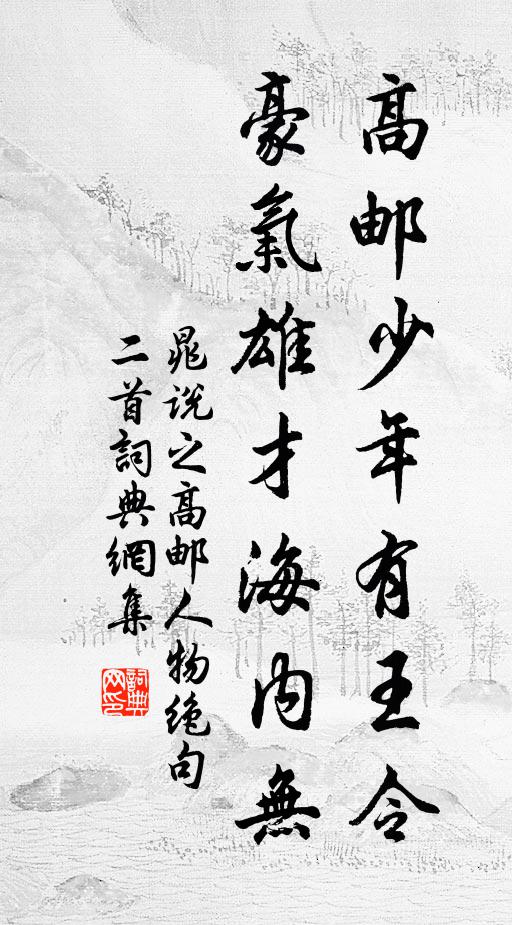 高邮少年有王令
豪氣雄才海内無
晁说之高邮人物绝句
二首詞典網集
詞典
网印